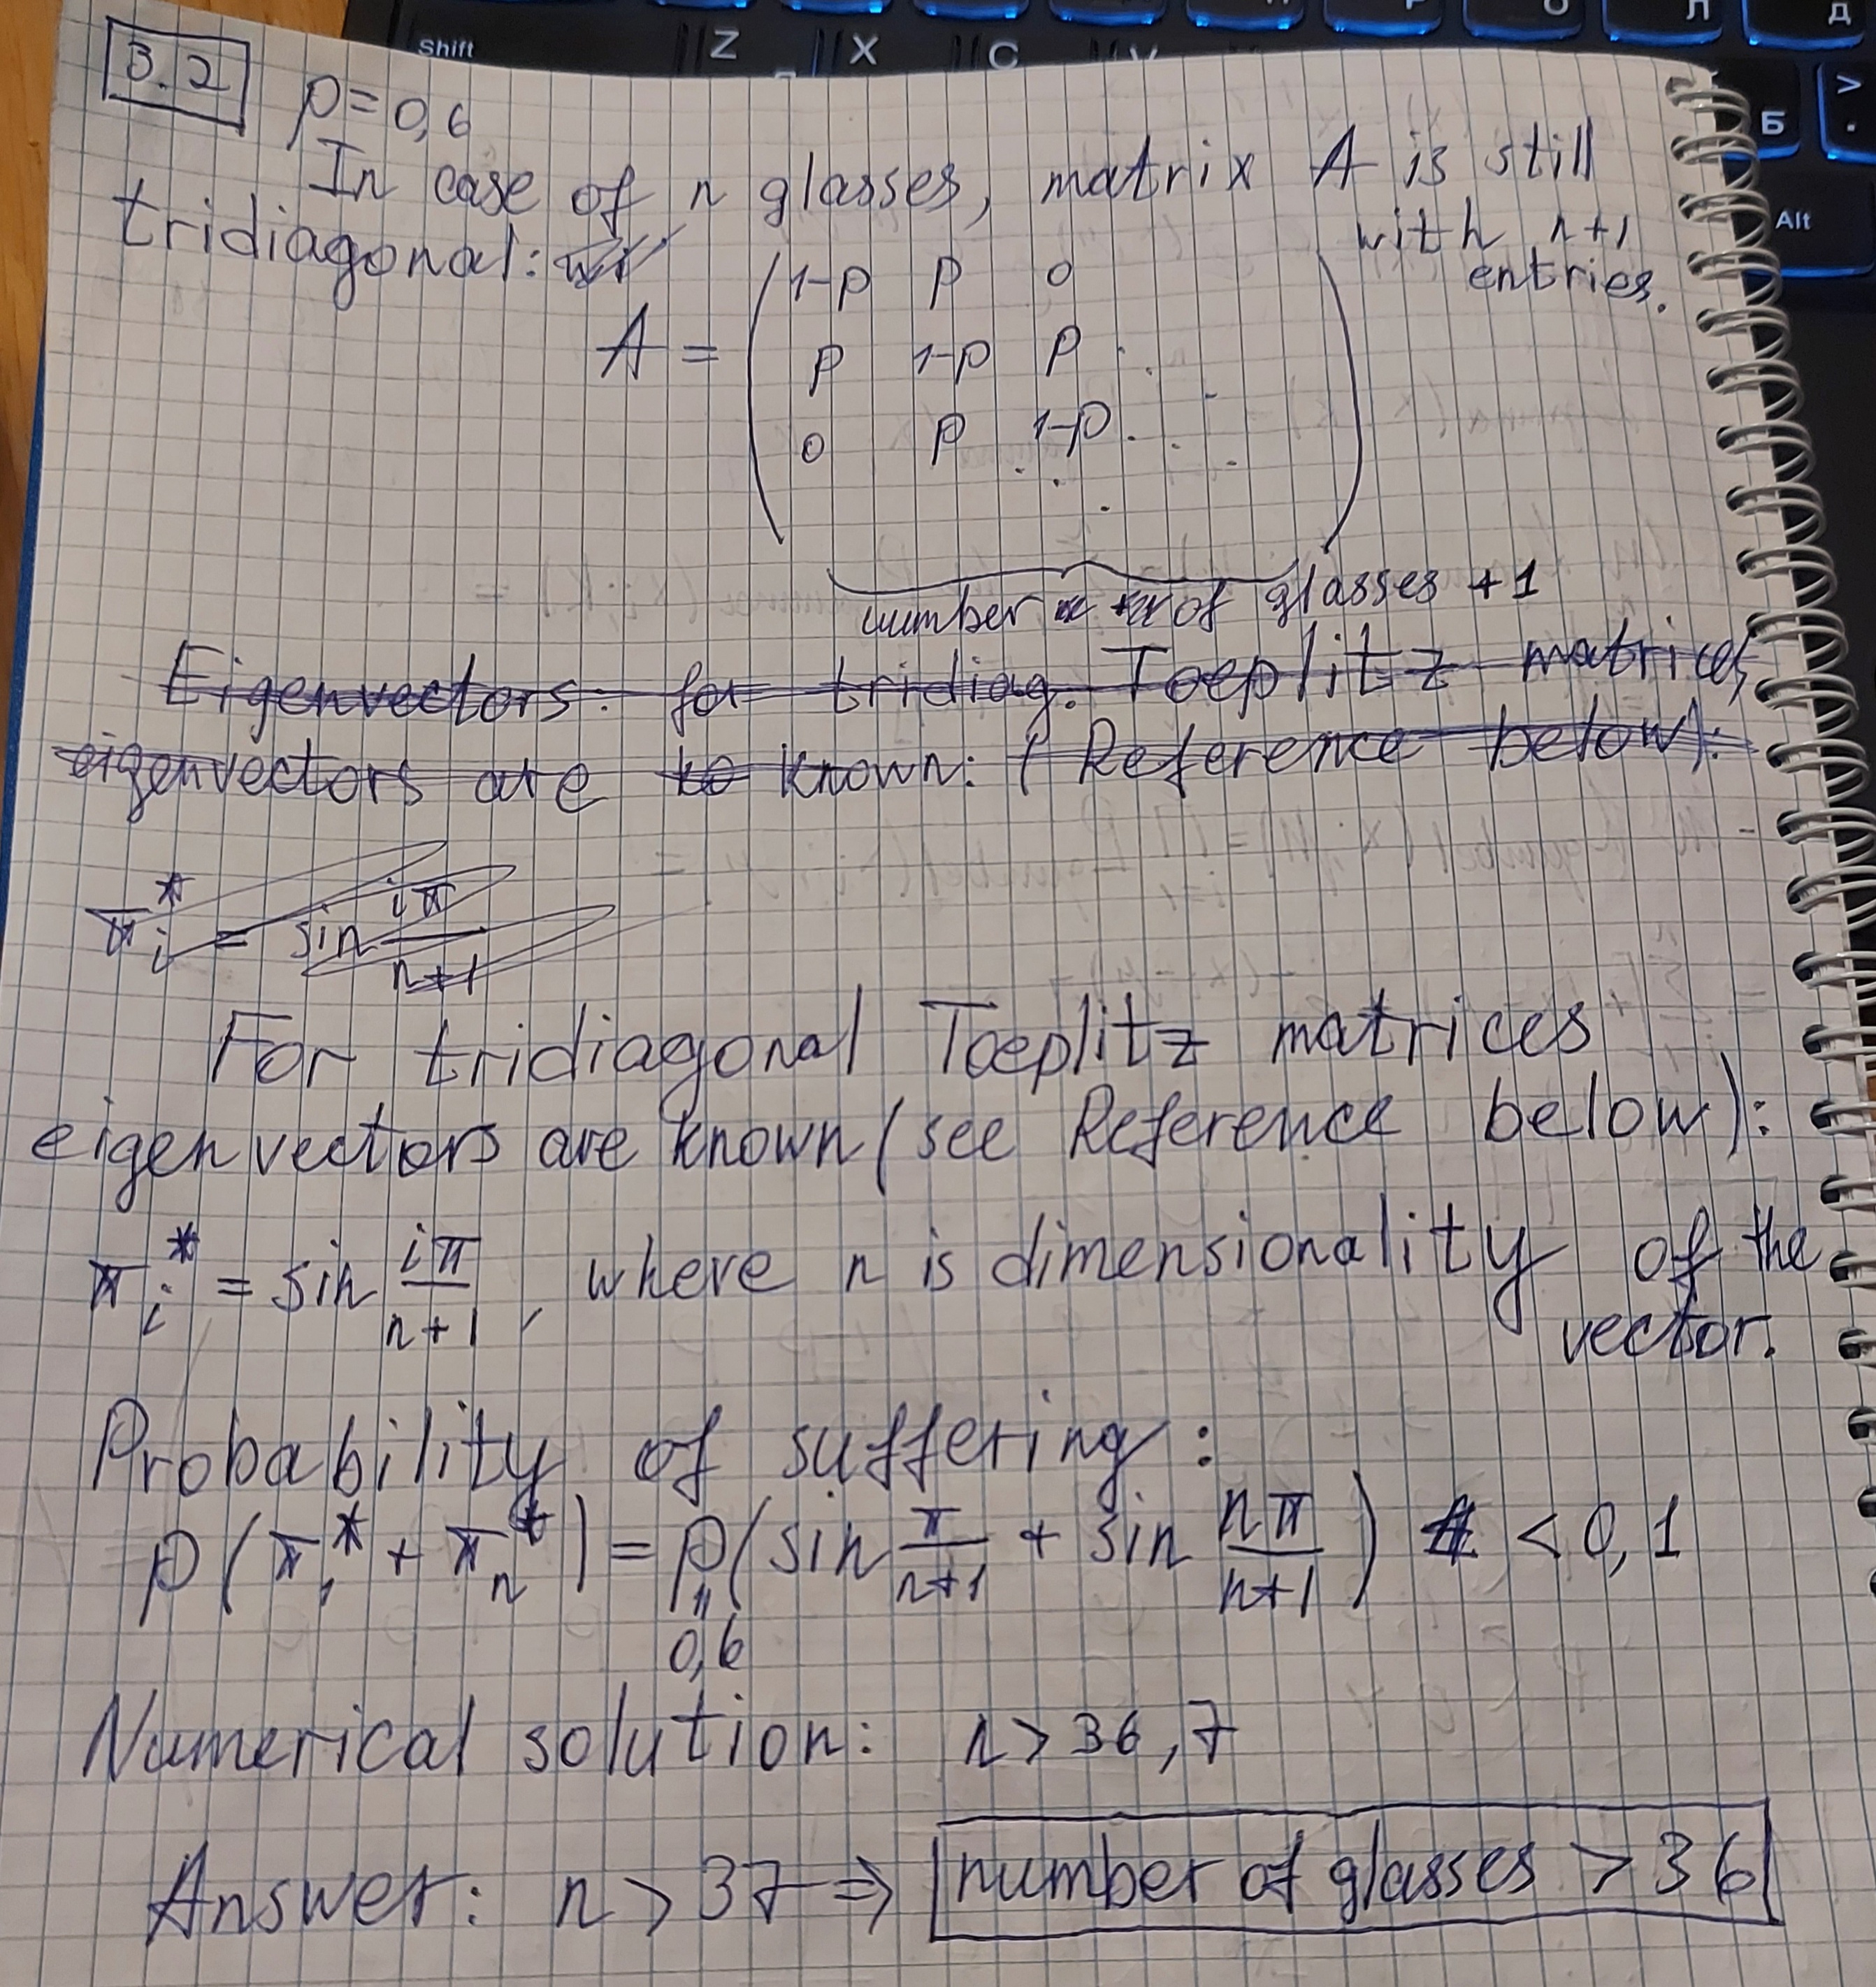 Shift Z X C V Л Д
Б > .
Alt
3.2
p=0,6
In case of n glasses, matrix A is still
tridiagonal: with n+1
entries.
A = ( 1-p p 0
p 1-p p .
0 p 1-p . . . )
number of glasses + 1
Eigenvectors: for tridiag. Toeplitz matrices,
eigenvectors are to known: (Reference below):
π*i = sin iπ/n+1
For tridiagonal Toeplitz matrices
eigenvectors are known (see Reference below):
π*i = sin iπ/n+1, where n is dimensionality of the
vector.
Probability of suffering:
p(π*1 + π*n) = p(sin π/n+1 + sin nπ/n+1) < 0,1
"
0,6
Numerical solution: n > 36,7
Answer: n > 37 ⇒ number of glasses > 36